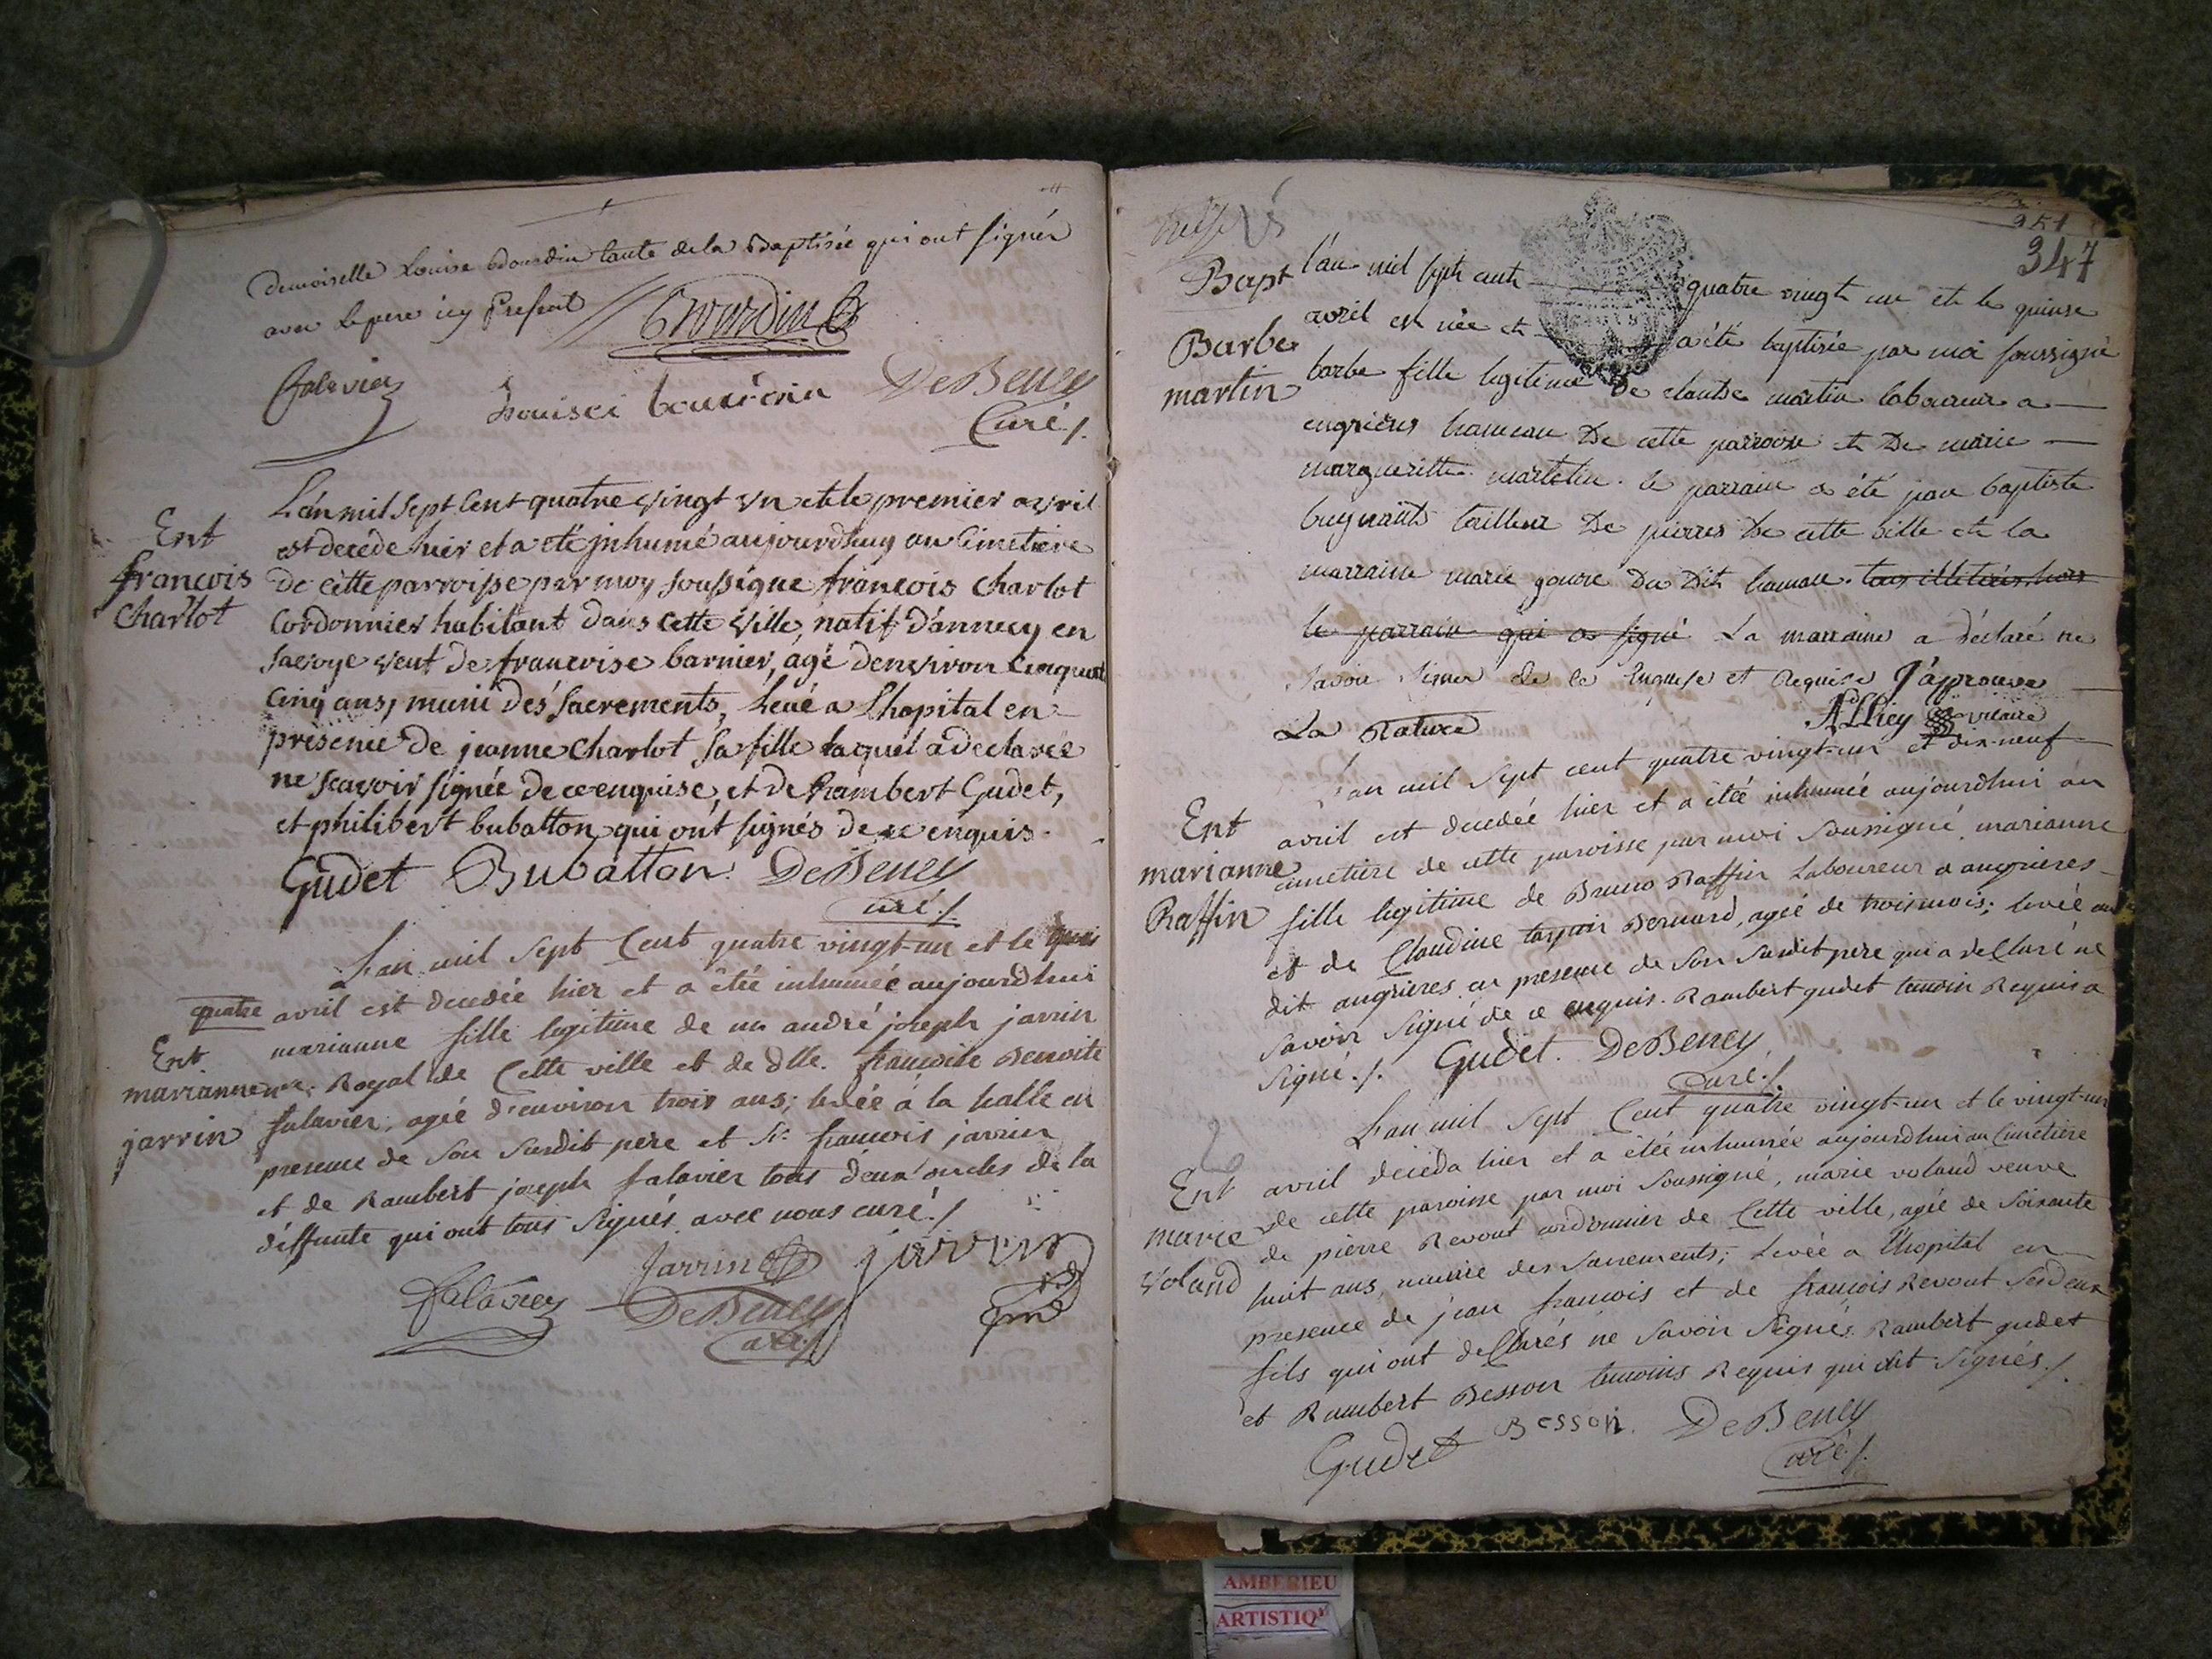 Demoiselle Louise Bourdin tante de la Baptisée qui ont signés
avec le pere icy Présent
Bourdin
falavier Louise bourdin DeBeney
Curé
L'an mil sept Cent quatre vingt vn et le premier avril
Ent
est decédé hier et a eté jnhumé aujourdhuy au Cimetiere
françois
de cette parroisse par moy soussigné françois Charlot
Charlot
Cordonnier habitant dans cette ville, natif d'annecy en
savoye veuf de françoise barnier, agé denviron Cinquante
Cinq ans, muni dés sacrements, levé a lhopital en
présence de jeanne Charlot sa fille laquel a declarée
ne sçavoir signée de ce enquise, et de Rambert Gudet,
et philibert bubatton qui ont signés de ce enquis.
Gudet Bubatton. DeBeney
curé
L'an mil sept Cent quatre vingt-un et le
quatre avril est decedée hier et a étée inhumée aujourdhui
Ent
marianne fille legitime de me andré joseph jarrin
marianne
Royal de Cette ville et de dlle. françoise Benoite
jarrin
falavier, agée d'environ trois ans; levée à la halle en
presence de son susdit pere et sr. françois jarrin
et de Rambert joseph falavier tous deux oncles de la
déffunte qui ont tous signés avec nous curé
Jarrin jarrin
falavier DeBeney
curé
351
347
Bapt
l'an mil sept cent quatre vingt un et le quinse
avril est née et a été baptisée par moi soussigné
Barbe
martin
barbe fille legitime de claude martin laboureur a
engrieres hameau de cette parroisse et de marie
margueritte martelin. le parrain a été jean baptiste
tailleur de pierres de cette ville et la
marraine marie goure du dit hameau. tous illeterés hors
le parrain qui a signé La marraine a déclaré ne
savoir signer de ce enquise et Requise J'aprouve
La Rature Alliey vicaire
L'an mil sept cent quatre vingt-un et dix-neuf
Ent
avril est decedée hier et a étée inhumée aujourdhui au
marianne
cimetiere de cette paroisse par moi soussigné marianne
Raffin
fille legitime de Bruno Raffin Laboureur a angrieres
et de Claudine Bernard, agée de trois mois; levée au
dit angrieres en presence de son susdit pere qui a deClaré ne
savoir signé de ce enquis. Rambert gudet temoin Requis a
signé. Gudet. DeBeney
Curé
L'an mil sept Cent quatre vingt-un et le vingt-un
Ent
avril deceda hier et a étée inhumée aujourdhui au Cimetiere
marie
de cette paroisse par moi soussigné, marie voland veuve
voland
de pierre Revout cordonnier de Cette ville, agée de soixante
huit ans, munie des sacrements; levée a lhopital en
presence de jean françois et de françois Revout ses deux
fils qui ont deClarés ne savoir signés. Rambert gudet
et Rambert Besson temoins Requis qui ont signés.
Gudet Besson. DeBeney
curé
AMBERIEU
ARTISTIQ